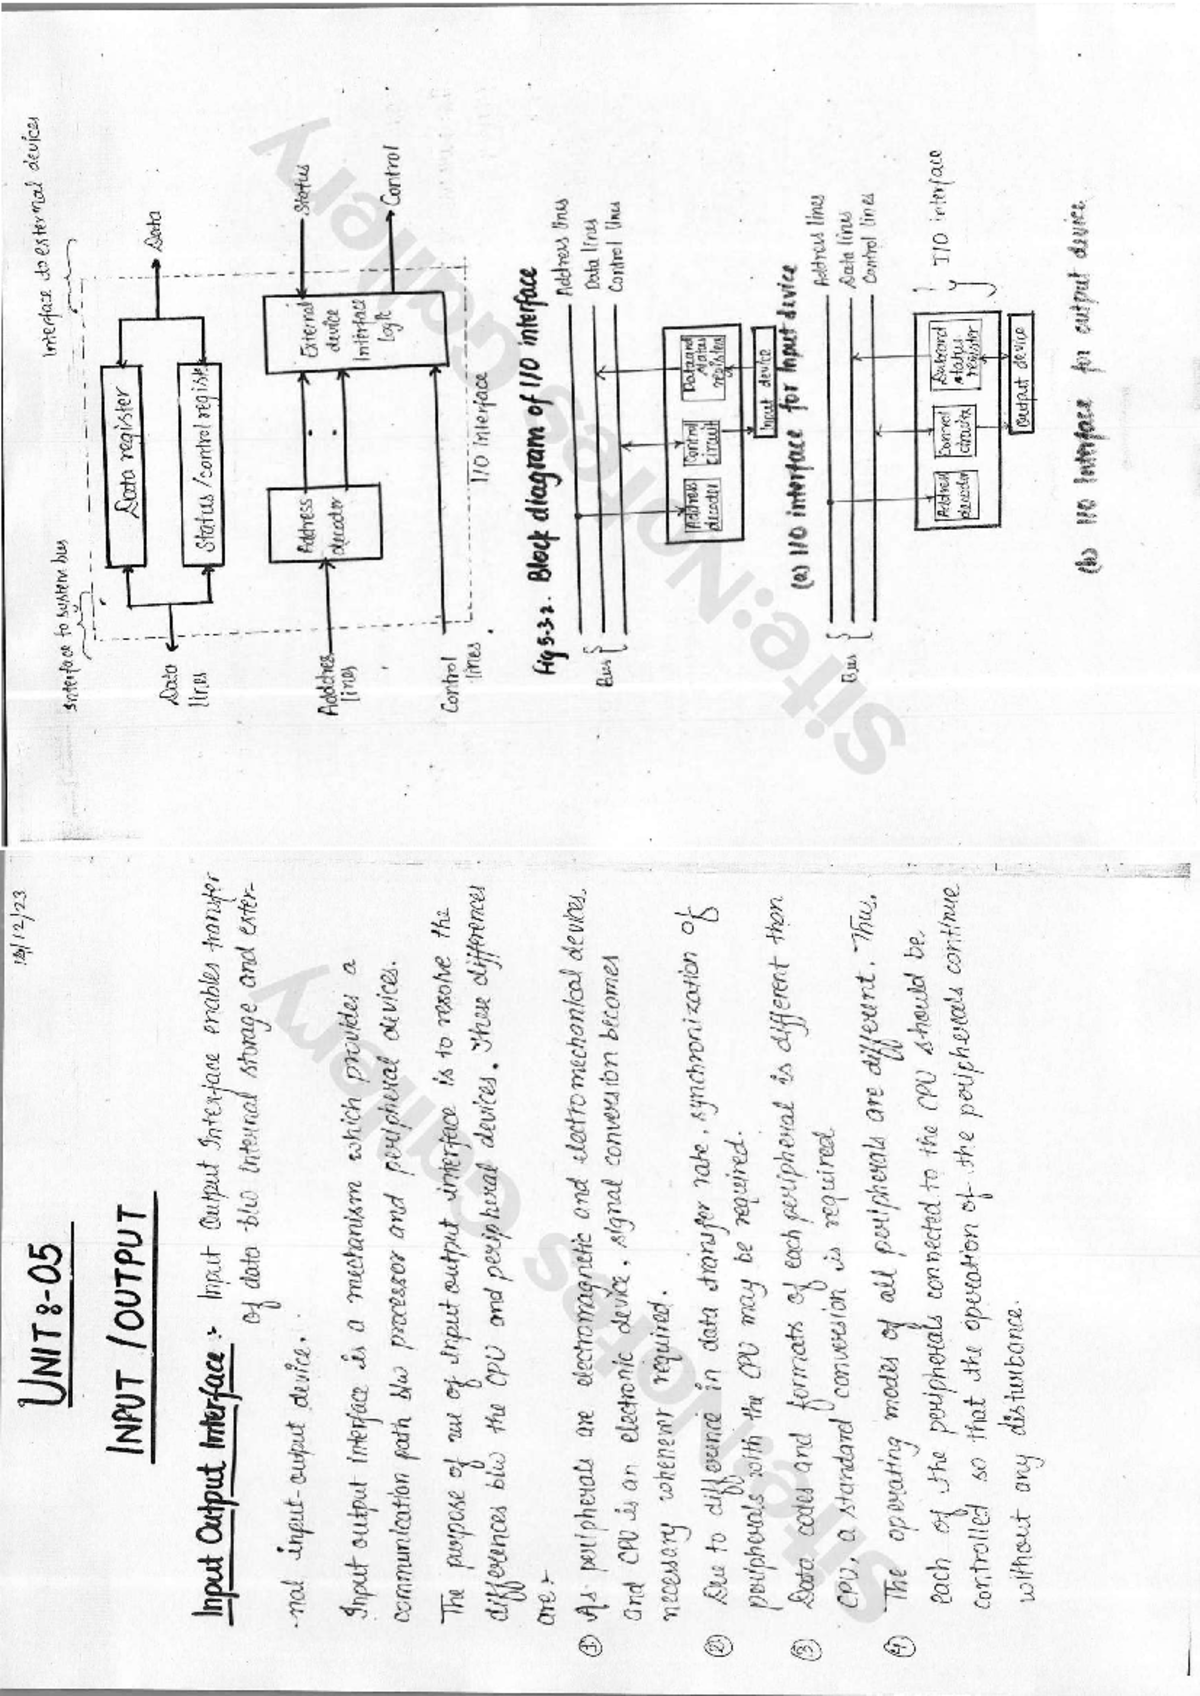 14/12/23
UNIT:-05
INPUT / OUTPUT
Input Output Interface :- Input Output Interface enables transfer
of data b/w internal storage and exter-
-nal input-output device.
Input output interface is a mechanism which provides a
communication path b/w processor and peripheral devices.
The purpose of use of input output interface is to resolve the
differences b/w the CPU and peripheral devices. These differences
are:-
① As peripherals are electromagnetic and electromechanical devices
and CPU is an electronic device, signal conversion becomes
necessary whenever required.
② Due to difference in data transfer rate, synchronization of
peripherals with the CPU may be required.
③ Data codes and formats of each peripheral is different than
CPU, a standard conversion is required
④ The operating modes of all peripherals are different. Thus,
each of the peripherals connected to the CPU should be
controlled so that the operation of the peripherals continue
without any disturbance.
Site:Notes Gallery
Interface to system bus
Interface to external devices
Data
lines
Data register
Status/control register
Data
Address
lines
Address
decoder
External
device
Interface
logic
Status
Control
Control
lines
I/O interface
Fig 5.3.2. Block diagram of I/O interface
Bus {
Address lines
Data lines
Control lines
Address
decoder
Control
circuit
Data and
status
register
Input device
(a) I/O interface for input device
Bus {
Address lines
Data lines
Control lines
Address
decoder
Control
circuits
status
register
} I/O interface
Output device
(b) I/O Interface for output device
Site:Notes Gallery